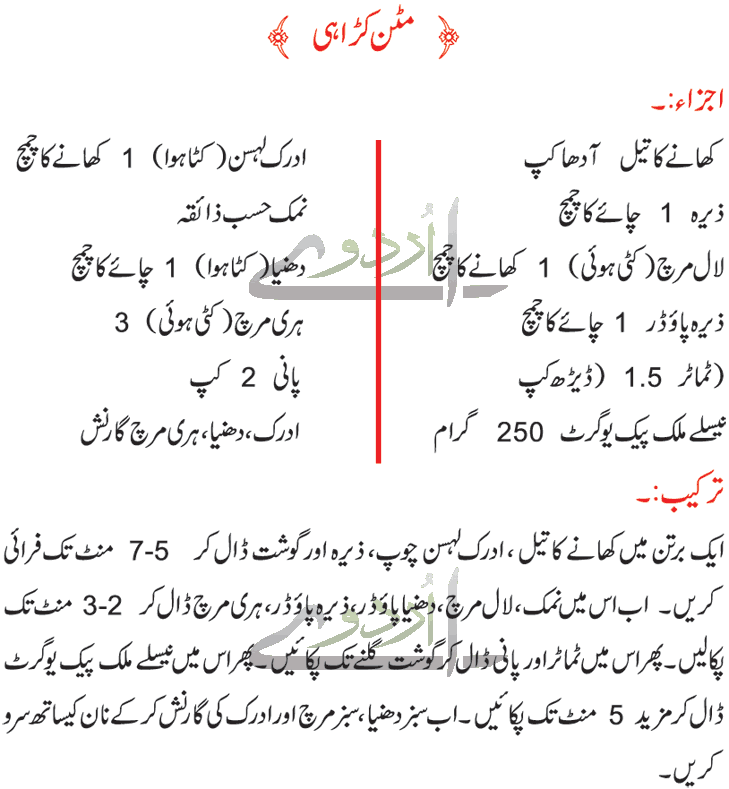 مٹن کڑاہی
اجزاء:۔
کھانے کا تیل آدھا کپ
ذیرہ 1 چائے کا چمچ
لال مرچ (کٹی ہوئی) 1 کھانے کا چمچ
ذیرہ پاؤڈر 1 چائے کا چمچ
(ٹماٹر 1.5 (ڈیڑھ کپ
نیسلے ملک پیک یوگرٹ 250 گرام
ادرک لہسن (کٹا ہوا) 1 کھانے کا چمچ
نمک حسب ذائقہ
دھنیا (کٹا ہوا) 1 چائے کا چمچ
ہری مرچ (کٹی ہوئی) 3
پانی 2 کپ
ادرک، دھنیا، ہری مرچ گارنش
ترکیب:۔
ایک برتن میں کھانے کا تیل، ادرک لہسن چوپ، ذیرہ اور گوشت ڈال کر 5-7 منٹ تک فرائی
کریں۔ اب اس میں نمک، لال مرچ، دھنیا پاؤڈر، ذیرہ پاؤڈر، ہری مرچ ڈال کر 2-3 منٹ تک
پکالیں۔ پھر اس میں ٹماٹر اور پانی ڈال کر گوشت گلنے تک پکائیں۔ پھر اس میں نیسلے ملک پیک یوگرٹ
ڈال کر مزید 5 منٹ تک پکائیں۔ اب سبز دھنیا، سبز مرچ اور ادرک کی گارنش کر کے نان کیساتھ سرو
کریں۔
اردو
اردو